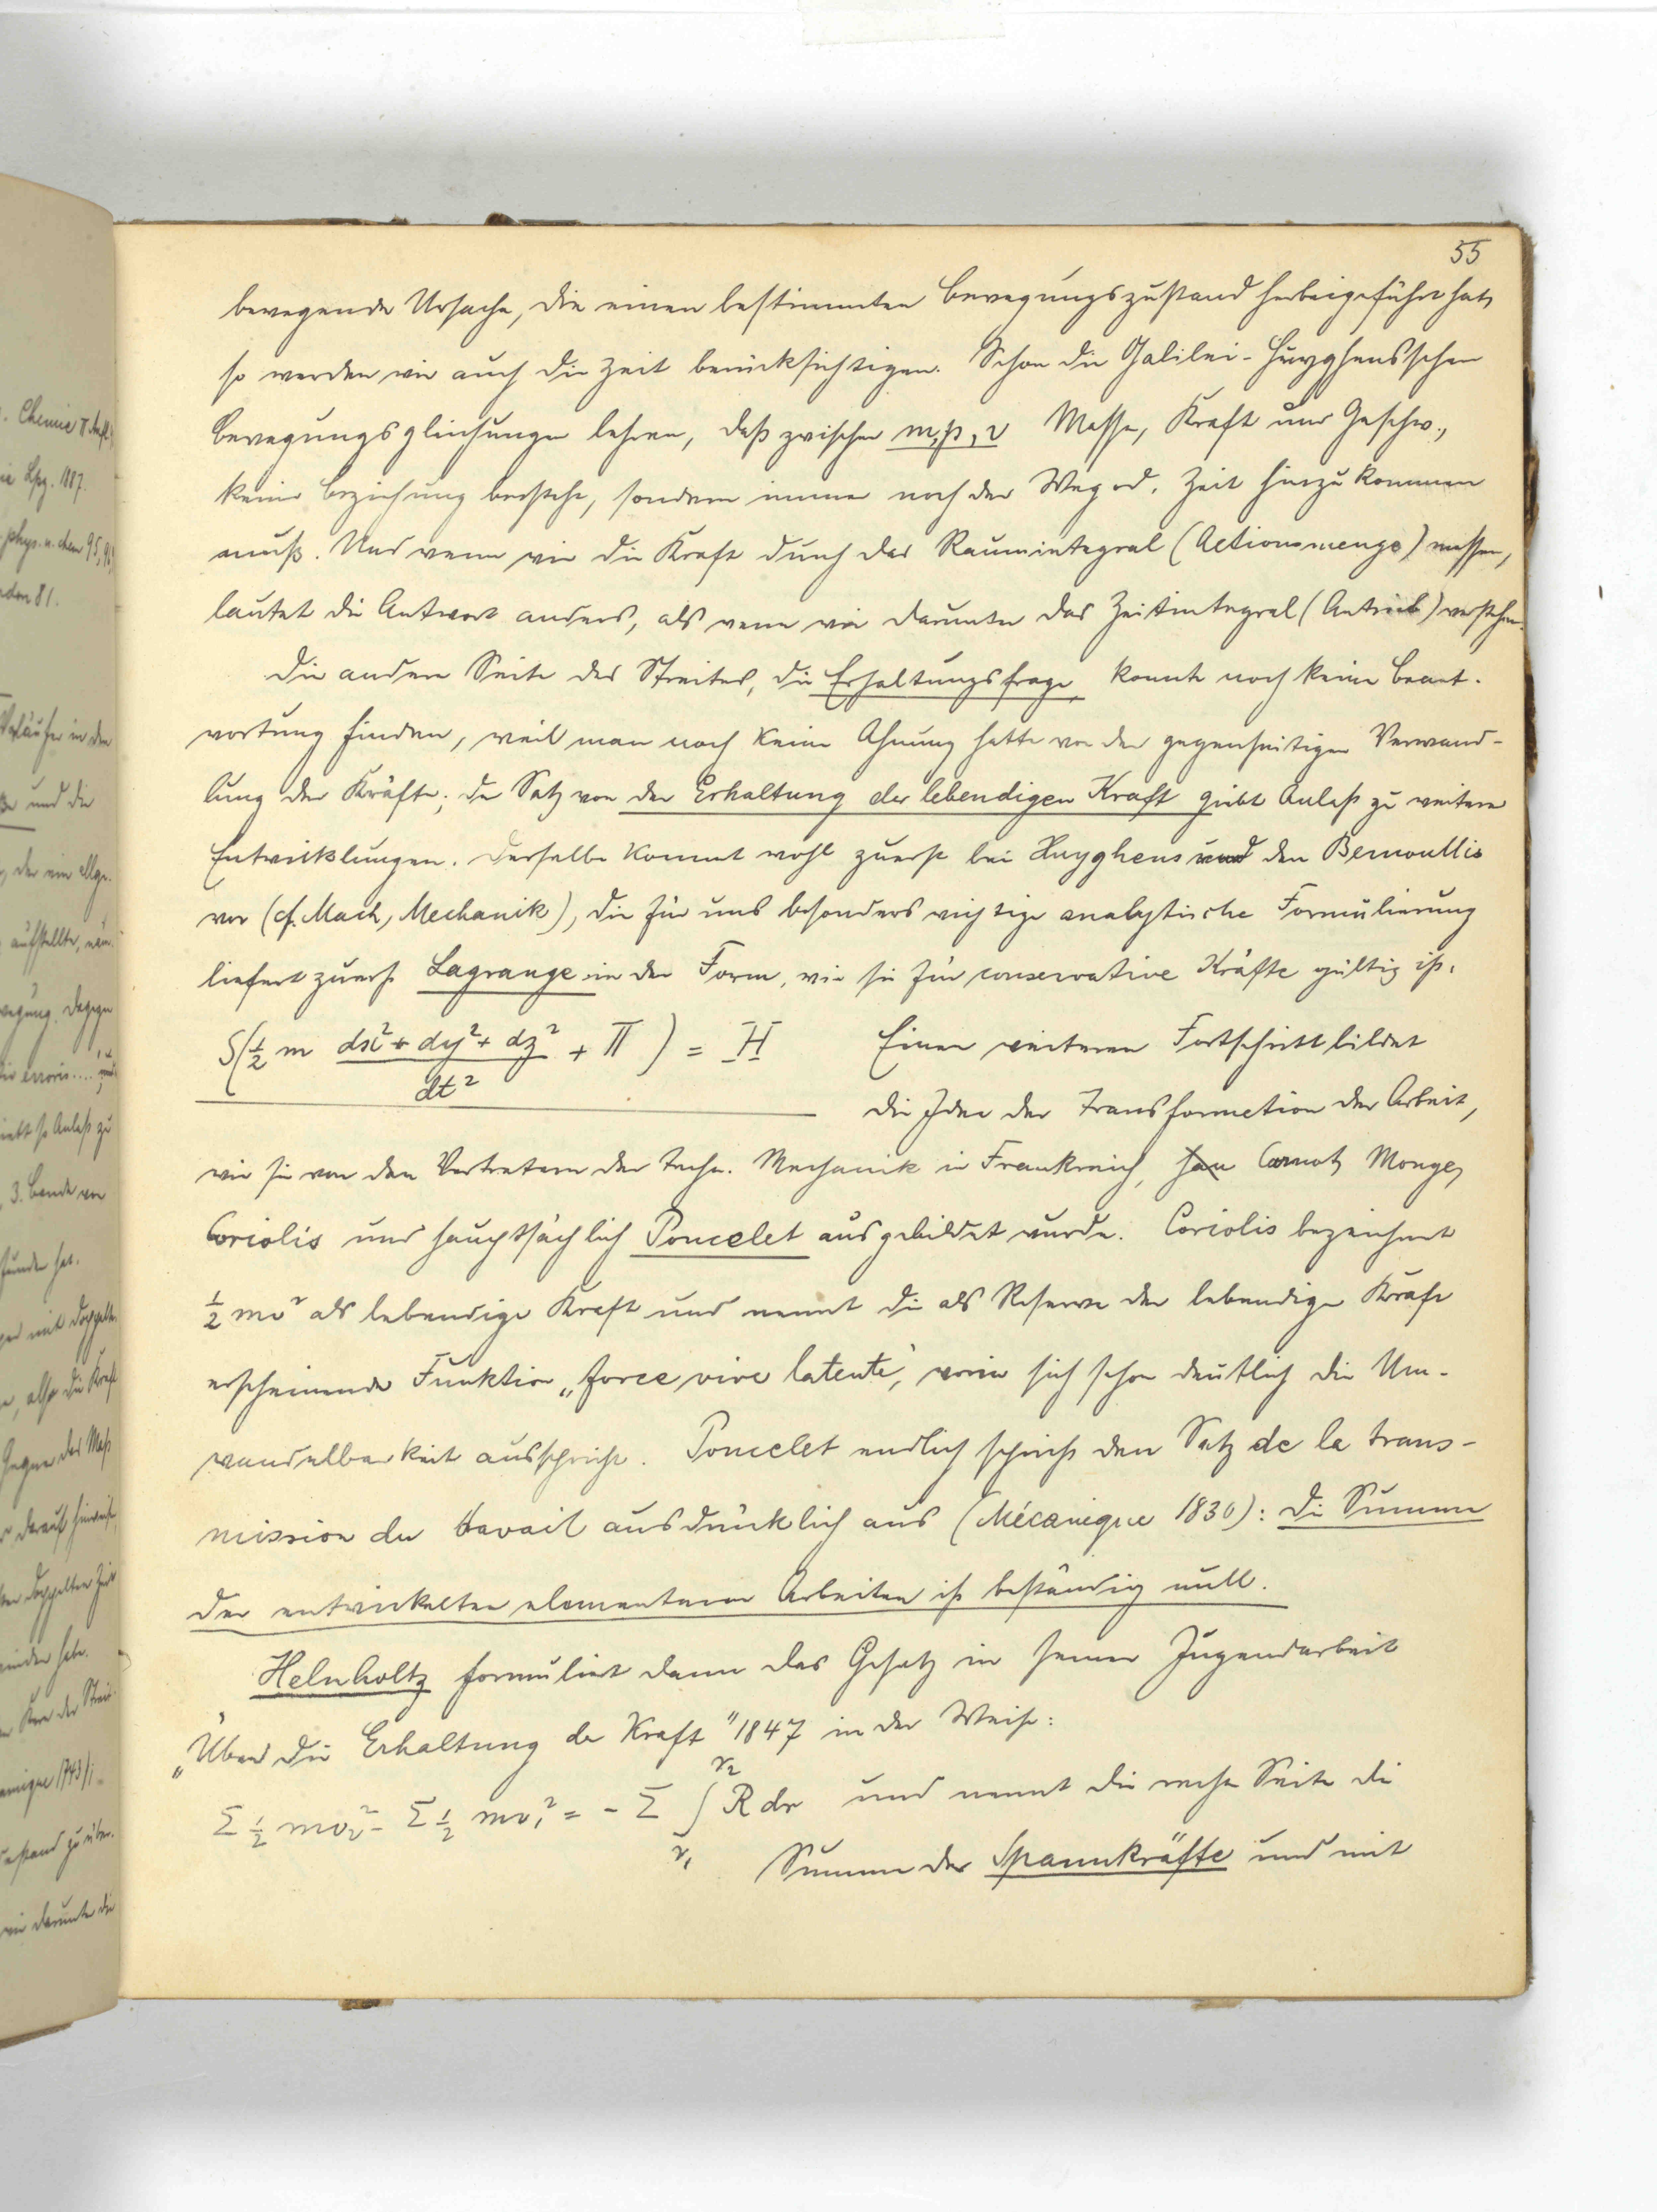 55
bewegende Ursache, die einen bestimmten Bewegungszustand herbeigeführt hat,
so werden wir auch die Zeit berücksichtigen. Schon die Galilei-Huyghensschen
Bewegungsgleichungen lehren, daß zwischen m, p, v Masse, Kraft und Geschw.,
keine Beziehung bestehe, sondern immer noch der Weg od. Zeit hinzukommen
muß. Und wenn wir die Kraft durch das Raumintegral (Actionsmenge) messen,
lautet die Antwort anders, als wenn wir darunter das Zeitintegral (Antrieb) verstehen.
Die andere Seite des Streites, die Erhaltungsfrage, konnte noch keine Beant-
wortung finden, weil man noch keine Ahnung hatte von der gegenseitigen Verwand-
lung der Kräfte; der Satz von der Erhaltung der lebendigen Kraft giebt Anlaß zu weiteren
Entwicklungen. Derselbe kommt wohl zuerst bei Huyghens und den Bernoullis
vor (cf. Mach, Mechanik), die für uns besonders wichtige analytische Formulierung
liefert zuerst Lagrange in der Form, wie sie für conservative Kräfte gültig ist.
S(½ m (dx² + dy² + dz²)/dt² + Π) = H Einen weiteren Fortschritt bildet
die Idee der Transformation der Arbeit,
wie sie von den Vertretern der techn. Mechanik in Frankreich, Carnot, Monge,
Coriolis und hauptsächlich Poncelet ausgebildet wurde. Coriolis bezeichnet
½ mv² als lebendige Kraft und nennt die als Reserve der lebendigen Kraft
erscheinende Funktion „force vive latente", worin sich schon deutlich die Um-
wandelbarkeit ausspricht. Poncelet endlich spricht den Satz de la trans-
mission du travail ausdrücklich aus (Mécanique 1830): die Summe
der entwickelten elementaren Arbeiten ist beständig null.
Helmholtz formuliert dann das Gesetz in seiner Jugendarbeit
„Über die Erhaltung der Kraft" 1847 in der Weise:
Σ ½ mv₂² - Σ ½ mv₁² = - Σ ∫ R dr und nennt die rechte Seite die
r₂
r₁
Summe der Spannkräfte und mit